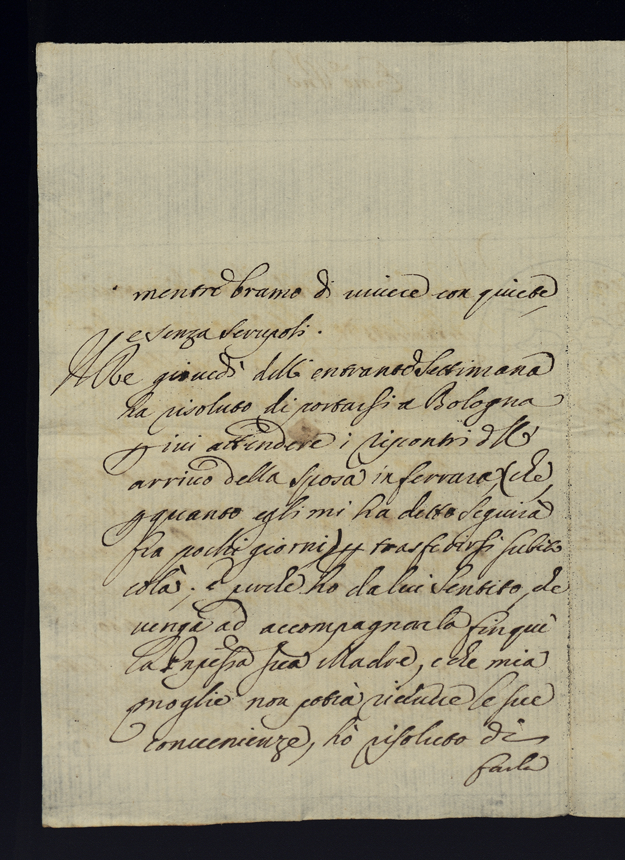 mentre bramo di vivere con quiete
e senza scrupoli.
giovedi dell' entrante Settimana
ha risoluto di portarsi a Bologna
p ivi attendere i riscontri dell'
arrivo della Sposa in ferrara (che,
p quanto egli mi ha detto seguirà
fra pochi giorni) p trasferirsi subito
colà; e perche ho da lui sentito, che
venga ad accompagnarla fin qui
la Sua Madre, e che mia
moglie non potrà ricevere le sue
convenienze, hò risoluto di
farla